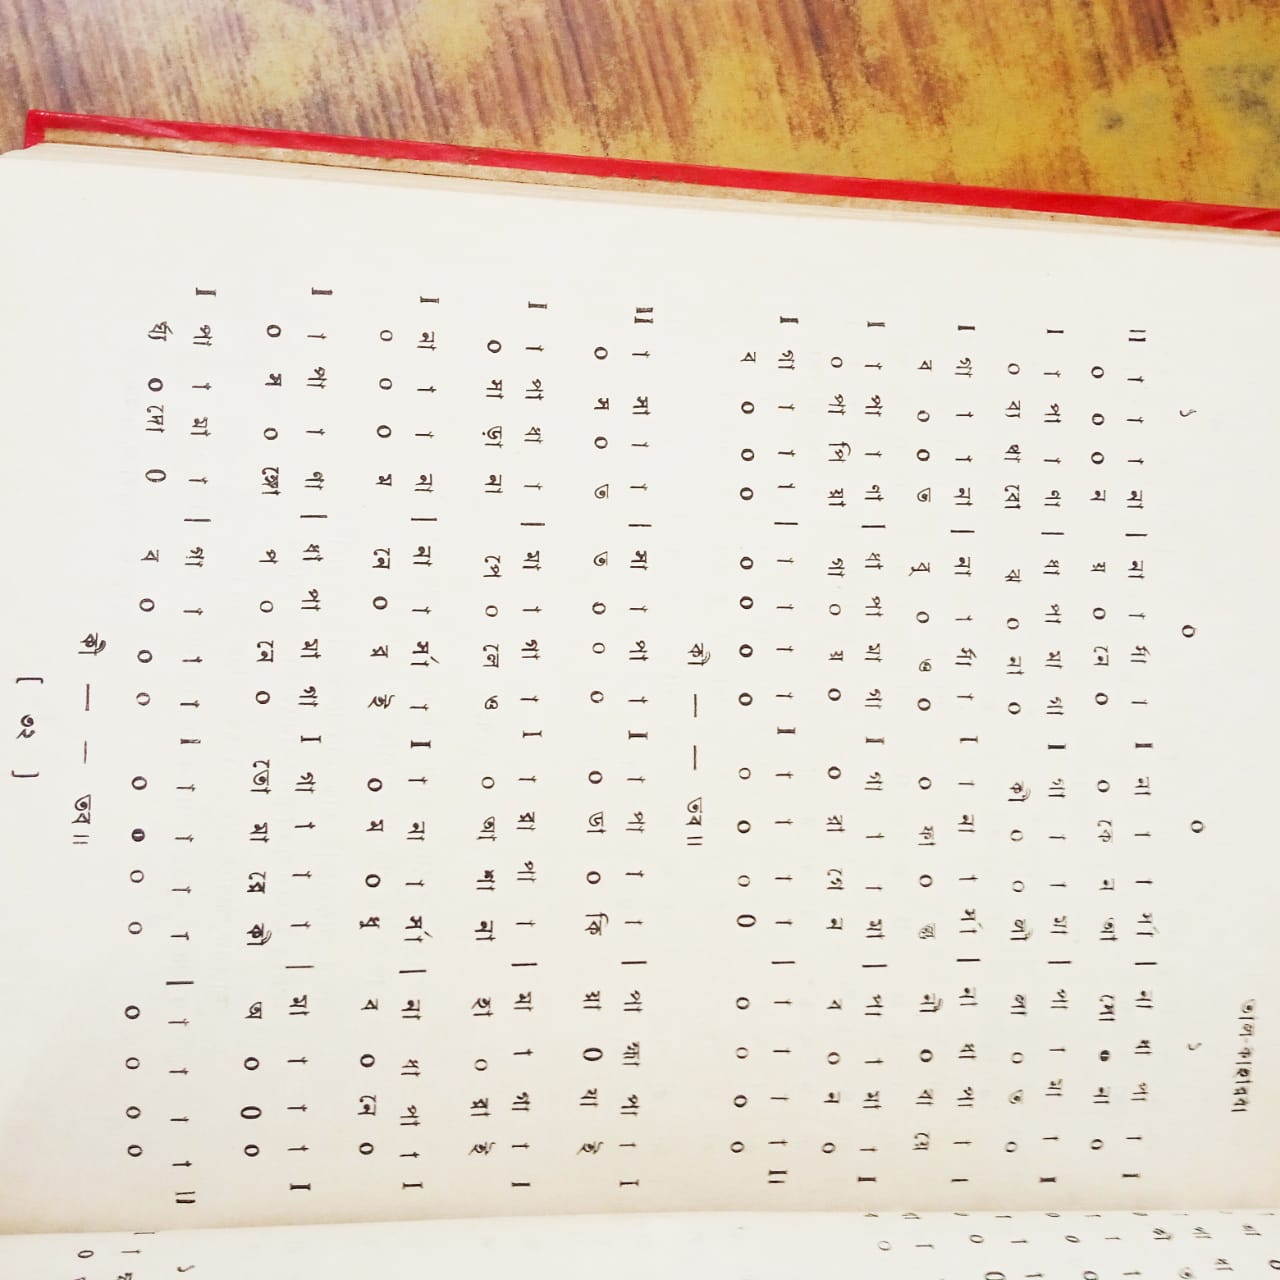 তাল-কাহারবা
১ ০ ০ ১
II † † † না | না † র্সা † I না † † র্সা | না ধা পা † I
০ ০ ০ ন য় ০ নে ০ ০ কে ন আ সো ০ না ০
I † পা † পা | ধা পা মা গা I গা † † মা | পা † মা † I
০ বা ধা বো ঝ ০ না ০ কী ০ ০ লী লা ০ ত ০
I গা † † না | না † র্সা † I † না † র্সা | না ধা পা † I
ব ০ ০ ত বু ০ ও ০ ০ ফা ০ ল্গু নী ০ বা য়ে
I † পা † পা | ধা পা মা গা I গা † † মা | পা † মা † I
০ পা পি য়া গা ০ য় ০ ০ রা গে ন ব ০ ন ০
I গা † † † | † † † † I † † † † | † † † † II
ব ০ ০ ০ ০ ০ ০ ০ ০ ০ ০ ০ ০ ০ ০ ০
কী — — তব॥
II † মা † † | মা † পা † I † পা † † | পা ক্ষা পা † I
০ ম ০ ত ত ০ ০ ০ ০ তা ০ কি য়া ০ যা ই
I † পা ধা † | মা † গা † I † রা পা † | মা † গা † I
০ সা ড়া না পে ০ লে ও ০ আ শা না হা ০ রা ই
I না † † না | না † র্সা † I † না † র্সা | না ধা পা † I
০ ০ ০ ম নে ০ র ই ০ ম ০ ধু ব ০ নে ০
I † পা † পা | ধা পা মা গা I গা † † † | মা † † † I
০ স ০ ঙ্গো প ০ নে ০ তো মা রে কী অ ০ ০ ০
I পা † মা † | গা † † † I † † † † | † † † † II
র্ঘ্য ০ দো ০ ব ০ ০ ০ ০ ০ ০ ০ ০ ০ ০ ০
কী — — তব॥
[ ৩২ ]